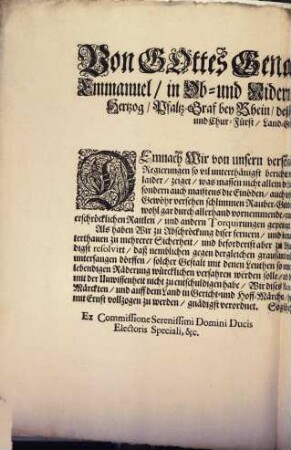 Von GOttes Gena
Emmanuel / in Ob- und Nidern
Hertzog / Pfaltz-Graf bey Rhein / deß
und Chur-Fürst / Land-G
DEmnach Wir von unsern
Regierungen so vil unterthänigst berichte
länder / zeiget / was massen nicht allein
sondern auch maistens die Einöden / auch
Gewöhr versehen schlimmen Rauber-
wohl gar durch allerhand vornemmende /
erschröcklichen Raitlen / und andern Torquirungen gepeiniget
Als haben Wir zu Abschröckung diser fernern / und
terthanen zu mehrerer Sicherheit / und befordersist aber zu
digst resolvirt / daß nemblichen gegen dergleichen grausamen
unterfangen dörfften / solcher Gestalt mit denen Leuthen so
lebendigen Räderung würcklichen verfahren werden solle /
mit der Unwissenheit nicht zu entschuldigen habe / Wir dises
Märckten / und auff dem Land in Gericht- und Hoff-Märchen
mit Ernst vollzogen zu werden / gnädigst verordnet.
Ex Commissione Serenissimi Domini Ducis
Electoris Speciali, &c.